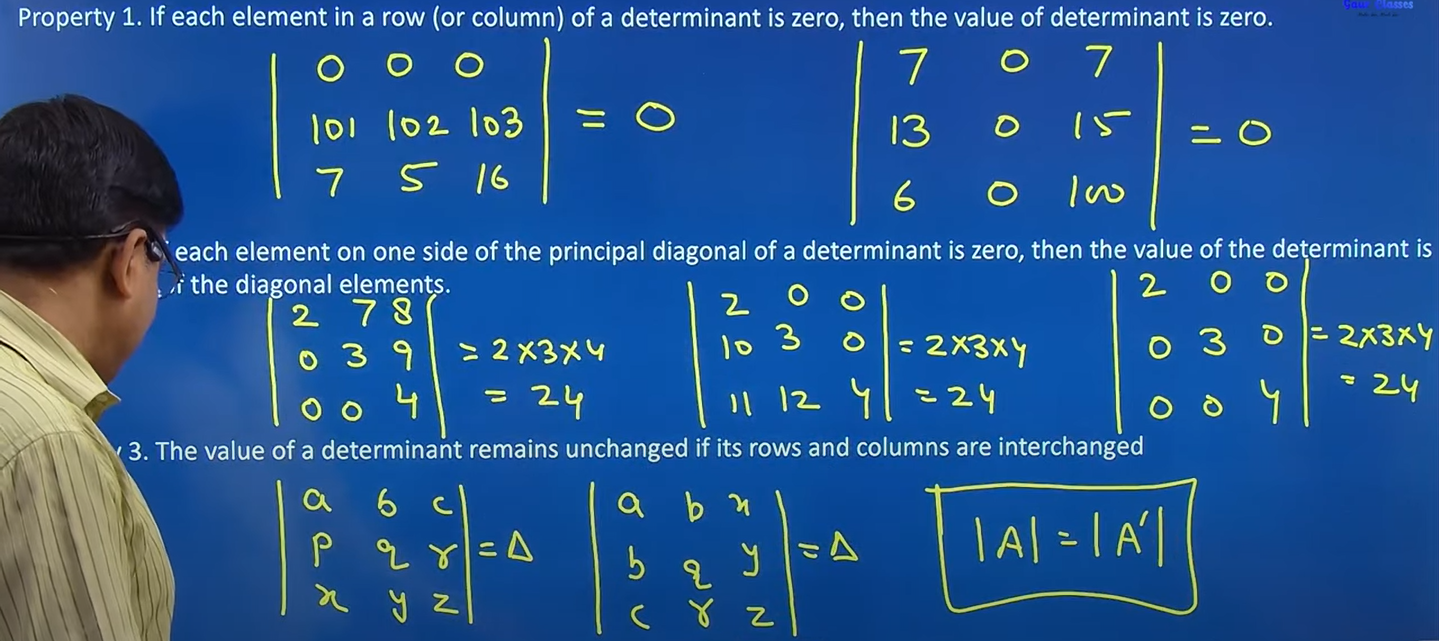 Gaur Classes
Property 1. If each element in a row (or column) of a determinant is zero, then the value of determinant is zero.
| 0 0 0 | | 7 0 7 |
| 101 102 103 | = 0 | 13 0 15 | = 0
| 7 5 16 | | 6 0 100 |
each element on one side of the principal diagonal of a determinant is zero, then the value of the determinant is
the diagonal elements.
| 2 7 8 | | 2 0 0 | | 2 0 0 |
| 0 3 9 | = 2×3×4 | 10 3 0 | = 2×3×4 | 0 3 0 | = 2×3×4
| 0 0 4 | = 24 | 11 12 4 | = 24 | 0 0 4 | = 24
3. The value of a determinant remains unchanged if its rows and columns are interchanged
| a b c | | a b x |
| p q r | = Δ | b q y | = Δ |A| = |A'|
| x y z | | c r z |